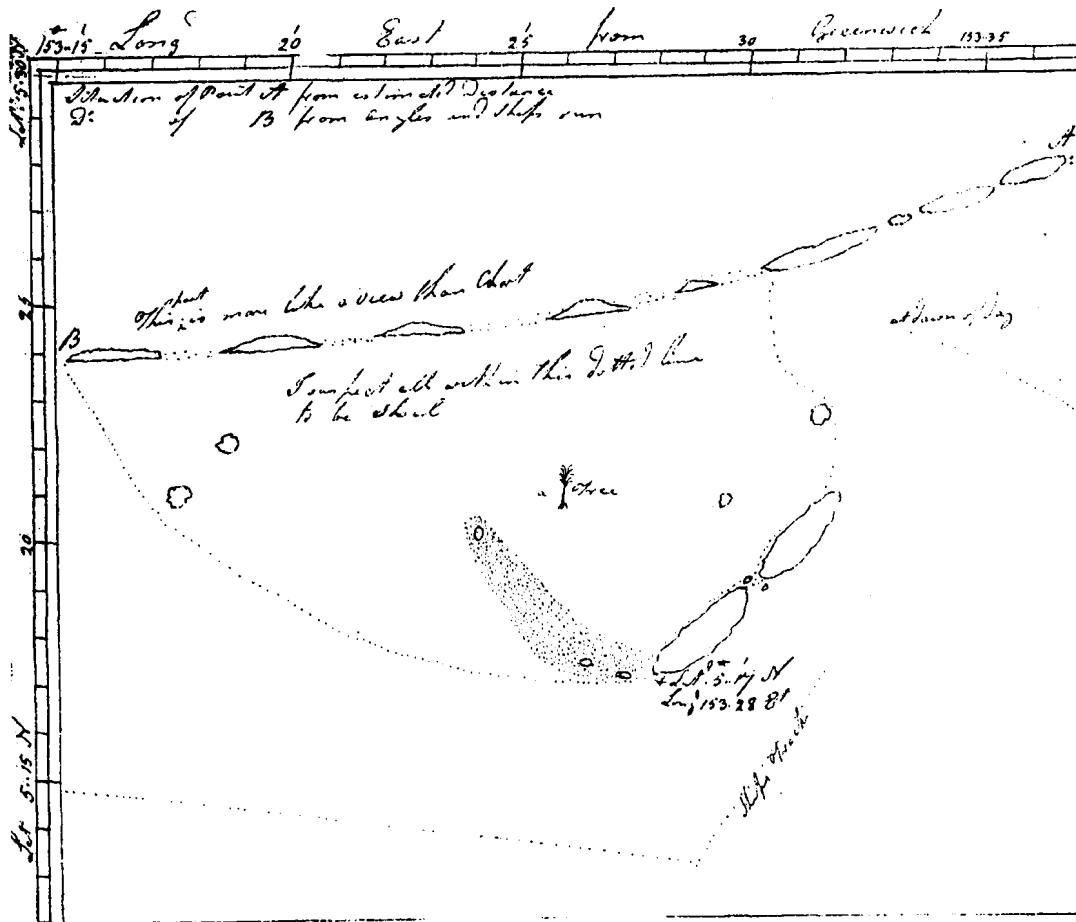 153-15 Long East from Greenwich
20 25 30 153.35
Situation of Point A from estimated Distance
Do of B from angles and Ships run
Latd 5-30 N
A
This part is more like a view than Chart
25
B
at dawn of day
I suspect all within this dotted line
to be shoal
a Tree
20
+ Latd 5-17 N
Long 153.28 Et
Ships Track
Lat 5-15 N